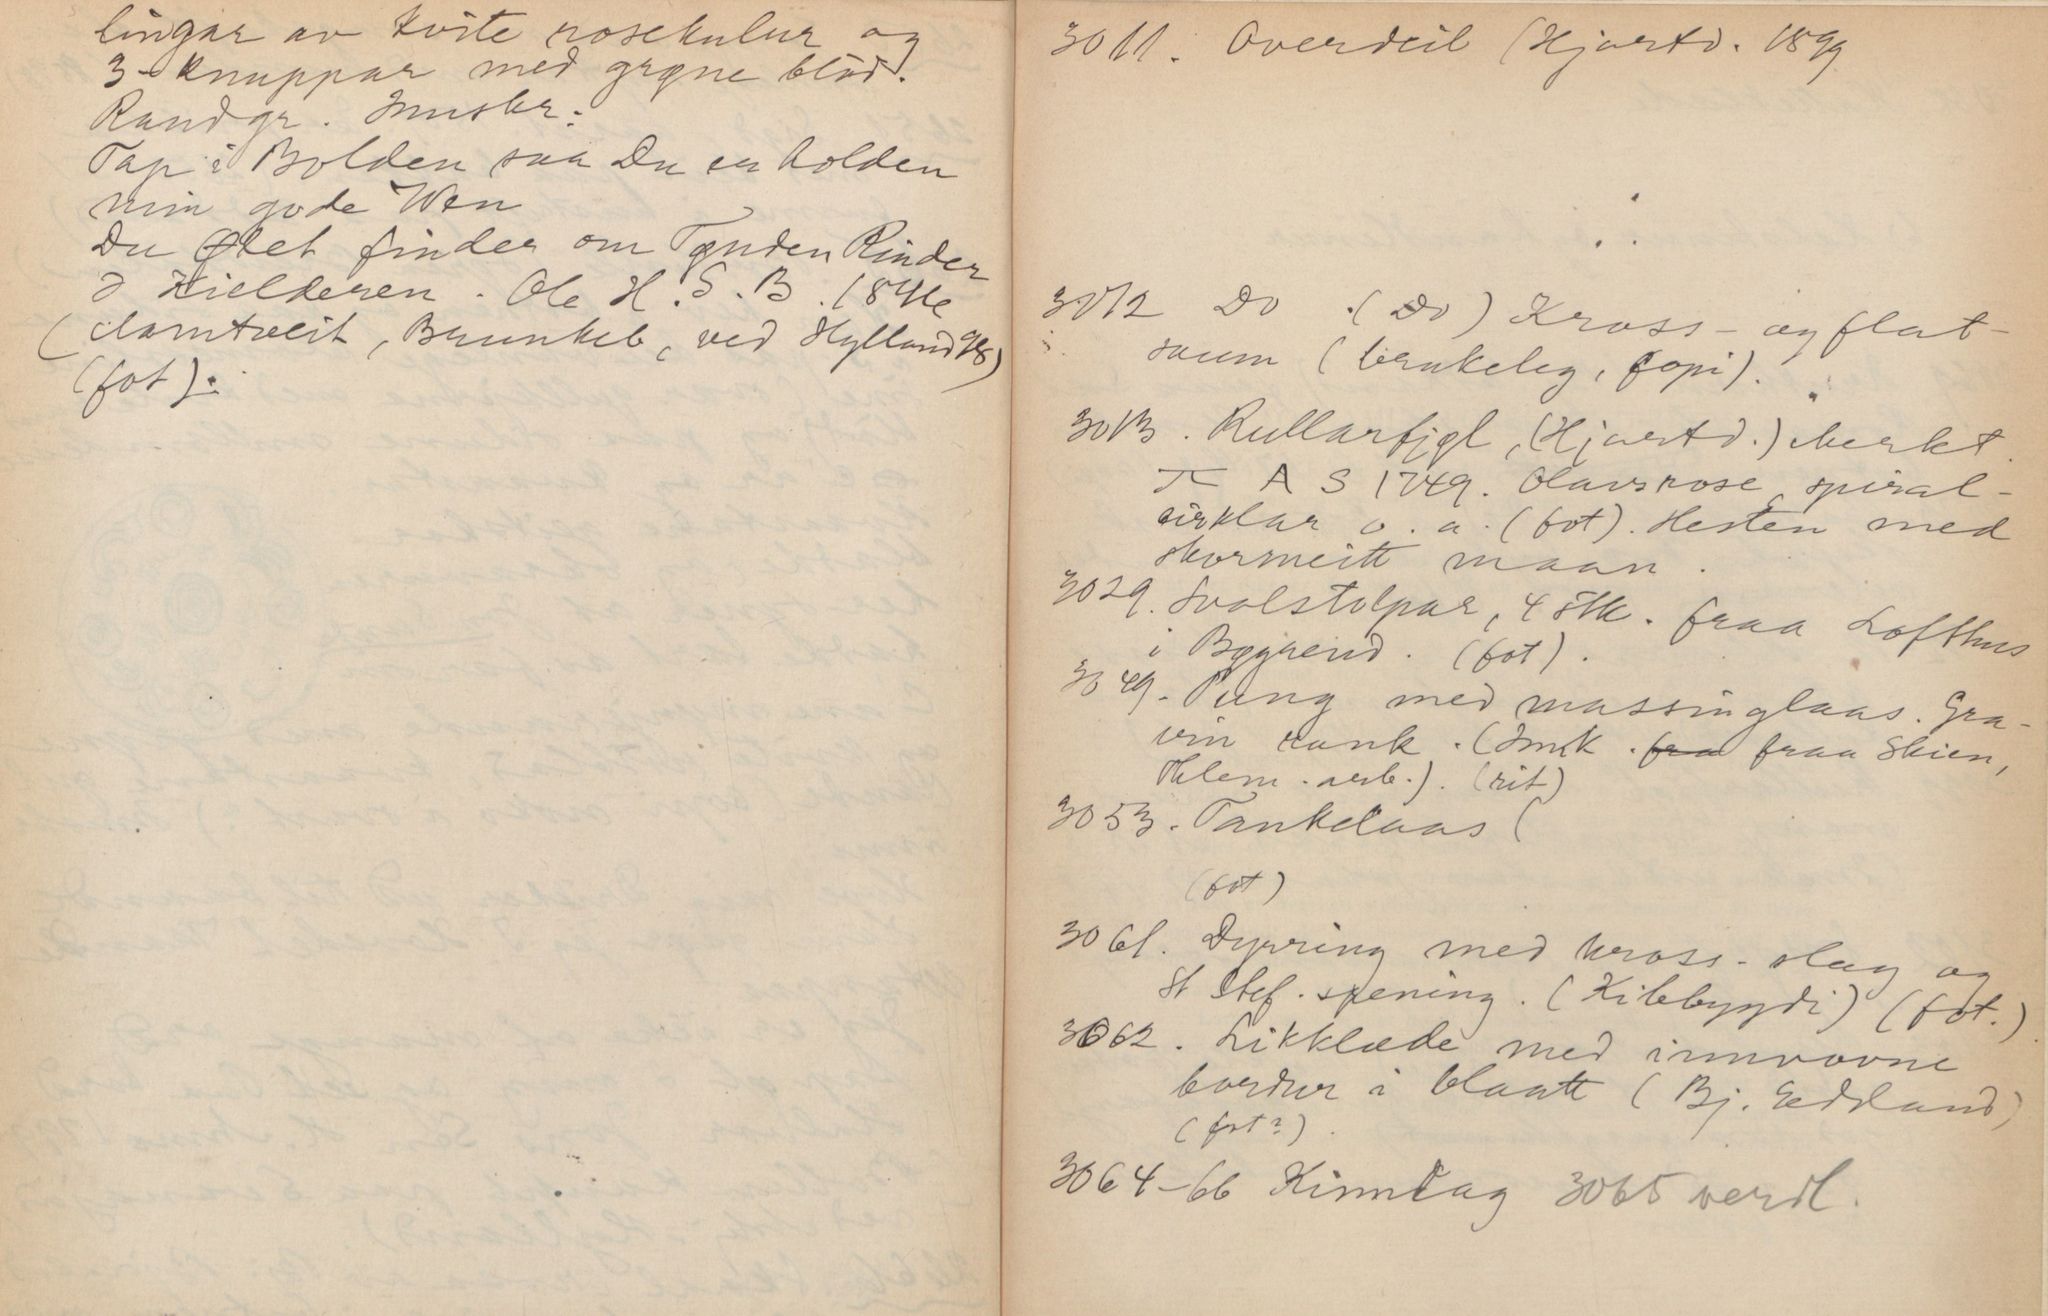 lingar av kvite rosekulur og
3-knuppar med grøne blad.
Randgr. Innskr:
Tap i Bolden saa Du er holden
min gode Wen
Du Øllet finder om Tønden Rinder
I Kielderen. Ole H. S. B. 18
(Aamtveit, Brunkeb, ved Hylland)
(fot).
3011. Overdeil (Hjartd. 1899
3012 Do. (Do) Kross- og flat-
saum (brukeleg, kopi).
3013. Rullarfjøl, (Hjartd.) Merkt
T A S 1749. Olavsrose, spiral-
sirklar o. a. (fot). Hesten med
skorneitt maan.
3029. Svolstolpar, 4 stk. fraa Lofthus
i Bøgrend. (fot).
3049. Pung med massinglaas. Gra-
vin rank. (Innk. fra fraa Skien,
Thelem. arb.). (rit)
3053. Tankelaas (
(fot)
3061. Dyrring med kross-slag og
St Stef. spening. (Kilebygdi) (fot.)
3062. Likklæde med innvovne
bordur i blaatt (Bj. Edland)
(fot?).
3064-66 Kinnlag 3065 verdl.